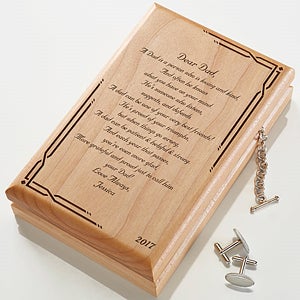 Dear Dad,
A Dad is a person who is loving and kind,
And often he knows
what you have on your mind.
He's someone who listens,
suggests, and defends.
A dad can be one of your very best friends!
He's proud of your triumphs,
but when things go wrong,
A dad can be patient & helpful & strong
And each year that passes,
you're even more glad,
More grateful and proud just to call him
your Dad!
Love Always,
Jessica
2017